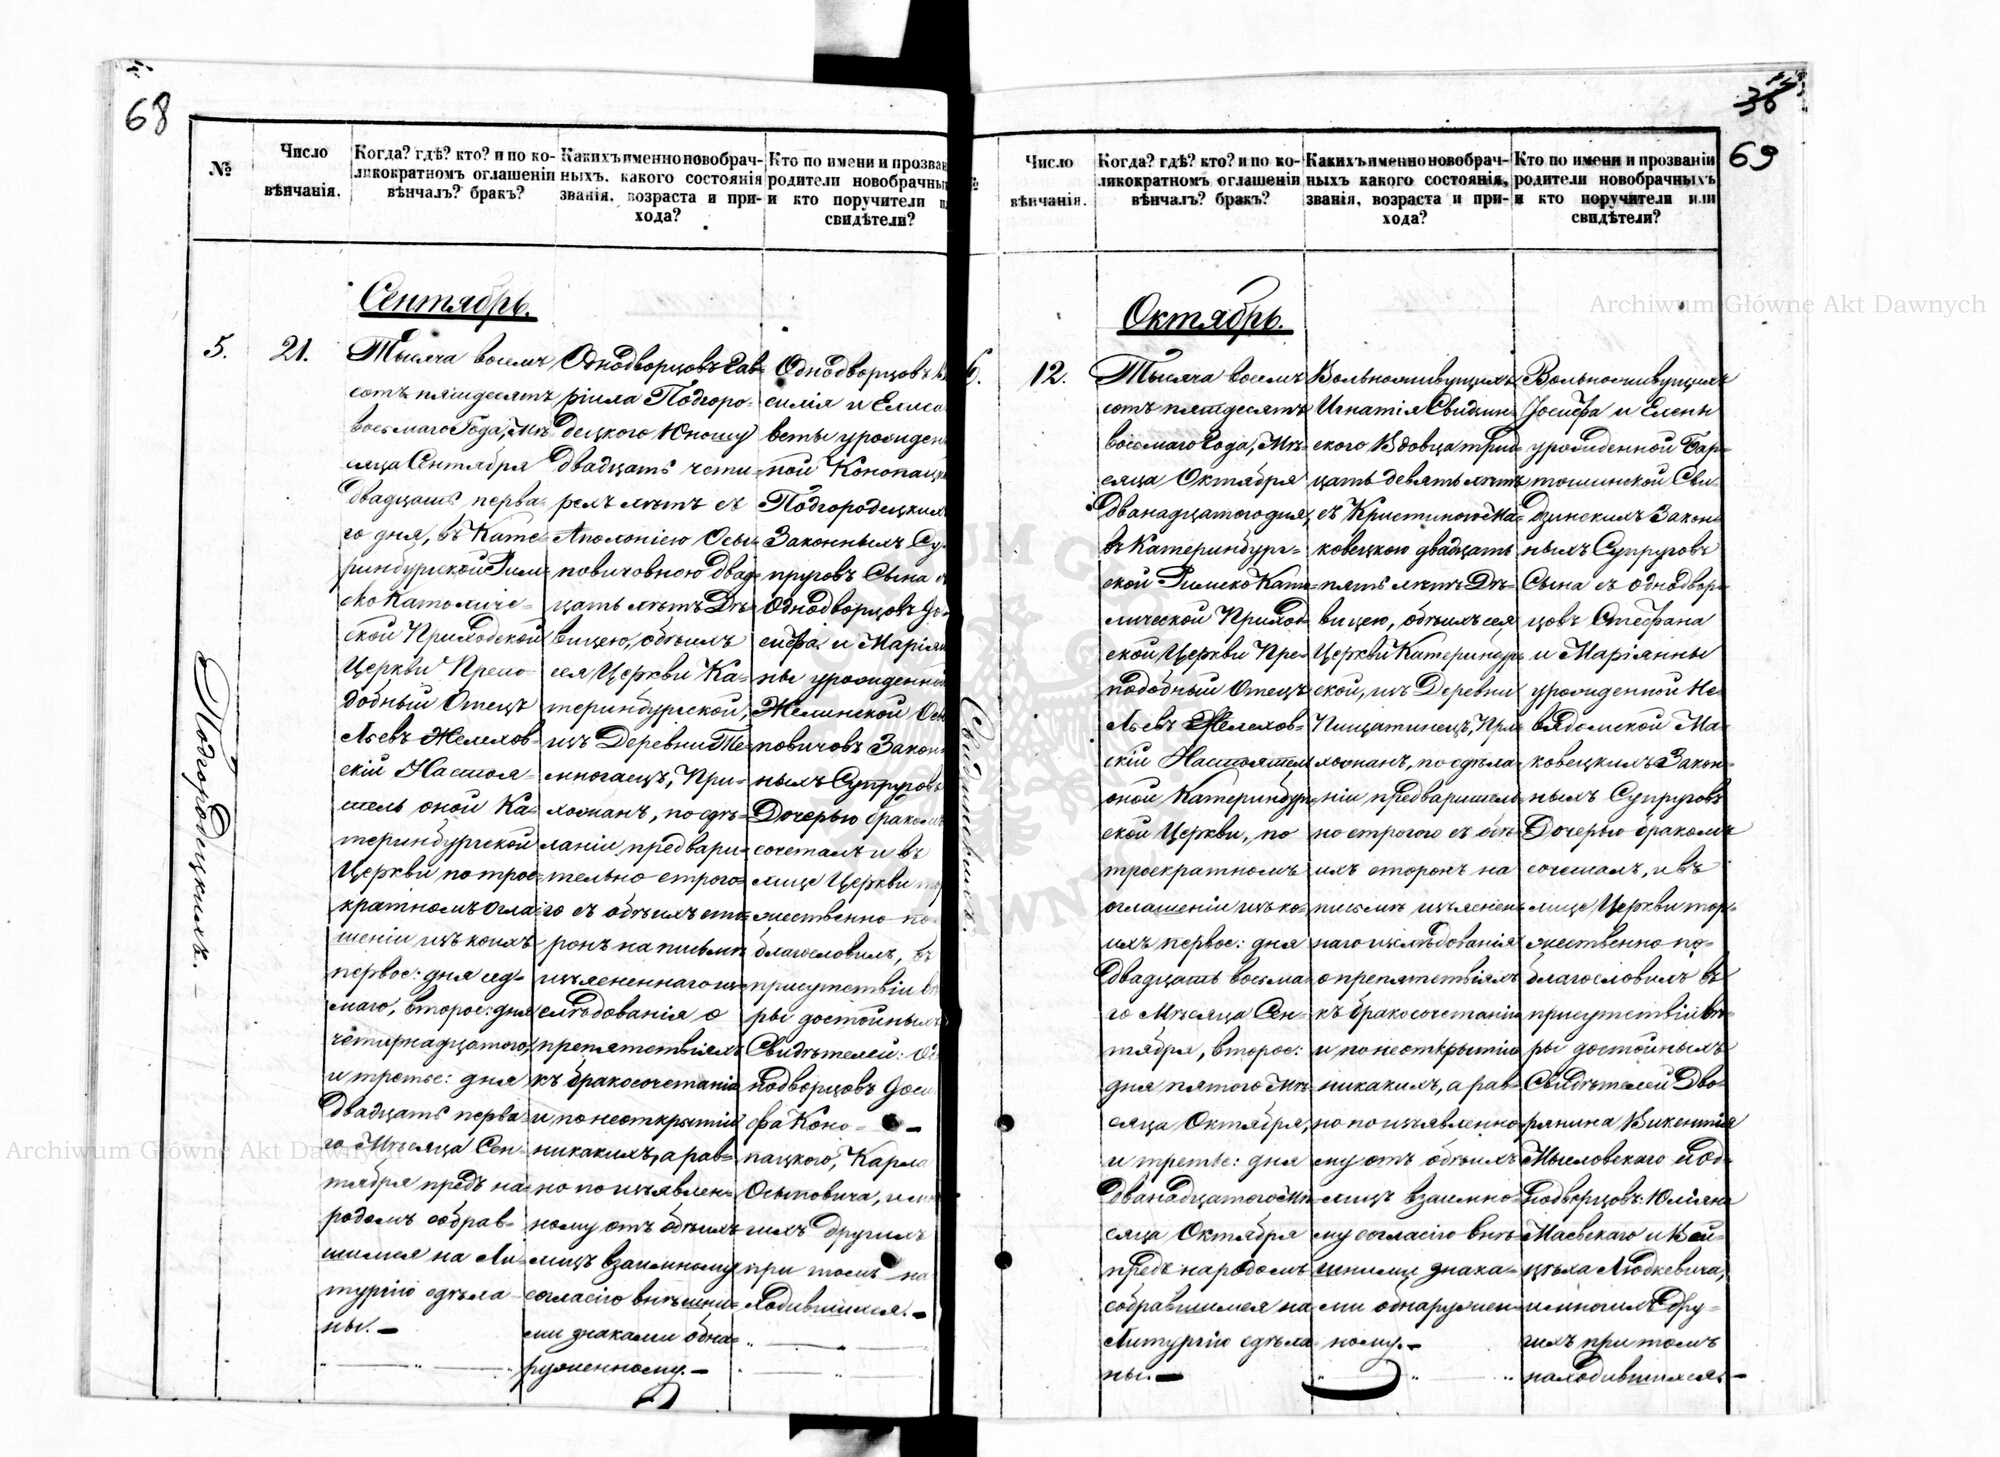 68
№
Число
вѣнчанія.
Когда? гдѣ? кто? и по ко-
ликократномъ оглашеніи
вѣнчалъ? бракъ?
Какихъ именно новобрач-
ныхъ, какого состоянія
званія, возраста и при-
хода?
Кто по имени и прозван
родители новобрачны
и кто поручители
свидѣтели?
Сентябрь.
5.
21.
Тысяча восемъ
сотъ пятдесятъ
восьмаго Года, Мѣ-
сяца Сентября
двадцать перва-
го дня, въ Кате-
ринбургской Рим-
ско Католиче-
ской Приходской
Церкви Препо-
добный Отецъ
Львъ Желехов-
скій Настоя-
тель оной Ка-
теринбургской
Церкви по трое-
кратномъ Огла-
шеніи изъ коихъ
первое: дня сед-
маго, второе: дня
четырнадцатого,
и третье: дня
двадцать перва-
го Мѣсяца Сен-
тября предъ на-
родомъ собрав-
шимся на Ли-
тургію сдѣла-
ны.—
Однодворцовъ Гав-
ріила Подгоро-
децкого Юношу
двадцать четы-
рехъ лѣтъ съ
Аполоніею Осы-
повичовною двад-
цать лѣтъ Дѣ-
вицею, обѣихъ
сея Церкви Ка-
теринбургской,
изъ Деревни Те-
многаецъ, При-
хожанъ, по сдѣ-
ланіи предвари-
тельно строго-
го съ обѣихъ сто-
ронъ на письмѣ
изъясненнаго из-
слѣдованія о
препятствіяхъ
къ бракосочетанію
и по неоткрытіи
никакихъ, а рав-
но по изъявлен-
ному отъ обѣихъ
лицъ взаимному
согласію внѣшни-
ми знаками обна-
руженному.—
Однодворцовъ
силія и Елиса
веты урожден
ной Конопацк
Подгородецкихъ
Законныхъ Су-
пруговъ Сына
Однодворцовъ Іо-
сифа и Маріян
ны урожденной
Желинской Осы
повичовъ Закон-
ныхъ Супруговъ
Дочерью бракомъ
сочеталъ и въ
лице Церкви тор
жественно по-
благословилъ, въ
присутствіи вѣ
ры достойныхъ
Свидѣтелей: Од
нодворцовъ Іоси
фа Коно-
пацкого, Карла
Осыповича, и мно
гихъ другихъ
при томъ на
ходившихся.—
Подгородецкихъ.—
36
69
Число
вѣнчанія.
Когда? гдѣ? кто? и по ко-
ликократномъ оглашеніи
вѣнчалъ? бракъ?
Какихъ именно новобрач-
ныхъ какого состоянія,
званія, возраста и при-
хода?
Кто по имени и прозваніи
родители новобрачныхъ
и кто поручители или
свидѣтели?
Октябрь.
6.
12.
Тысяча восемъ
сотъ пятдесятъ
восьмаго Года, Мѣ-
сяца Октября
Дванадцатого дня,
въ Катеринбург-
ской Римско Като-
лической Приход-
ской Церкви Пре-
подобный Отецъ
Львъ Желехов-
скій Настоятель
оной Катеринбург-
ской Церкви, по
троекратномъ
оглашеніи изъ ко-
ихъ первое: дня
двадцать восьма-
го Мѣсяца Сен-
тября, второе:
дня пятого Мѣ-
сяца Октября,
и третье: дня
дванадцатого Мѣ-
сяца Октября
предъ народомъ
собравшимся на
Литургію сдѣла-
ны.—
Вольноживущихъ
Игнатія Свидзин-
ского Вдовца трид-
цать девять лѣтъ
съ Кристиною Ма-
ковецкою двадцать
пять лѣтъ Дѣ-
вицею, обѣихъ сея
Церкви Катеринбург-
ской, изъ Деревни
Пищатинецъ, При-
хожанъ, по сдѣла-
ніи предваритель-
но строгого съ обѣ-
ихъ сторонъ на
письмѣ изъяснен-
наго изслѣдованія
о препятствіяхъ
къ бракосочетанію
и по неоткрытіи
никакихъ, а рав-
но по изъявленно-
му отъ обѣихъ
лицъ взаимно-
му согласію внѣ-
шними знака-
ми обнаружен-
ному.—
Вольноживущихъ
Іосифа и Елены
урожденной Бар-
тошинской Сви-
дзинскихъ Закон-
ныхъ Супруговъ
Сына съ однодвор-
цовъ Стефана
и Маріянны
урожденной Не-
вядомской Ма-
ковецкихъ Закон-
ныхъ Супруговъ
Дочерью бракомъ
сочеталъ, и въ
лице Церкви тор-
жественно по-
благословилъ въ
присутствіи вѣ-
ры достойныхъ
Свидѣтелей Дво-
рянина Викентія
Мысловскаго и Од-
нодворцовъ: Юліяна
Маевскаго и Вой-
цѣха Людкевича,
и многихъ дру-
гихъ при томъ
находившихся.—
Свидзинскихъ.
Archiwum Główne Akt Dawnych
Archiwum Główne Akt Dawnych